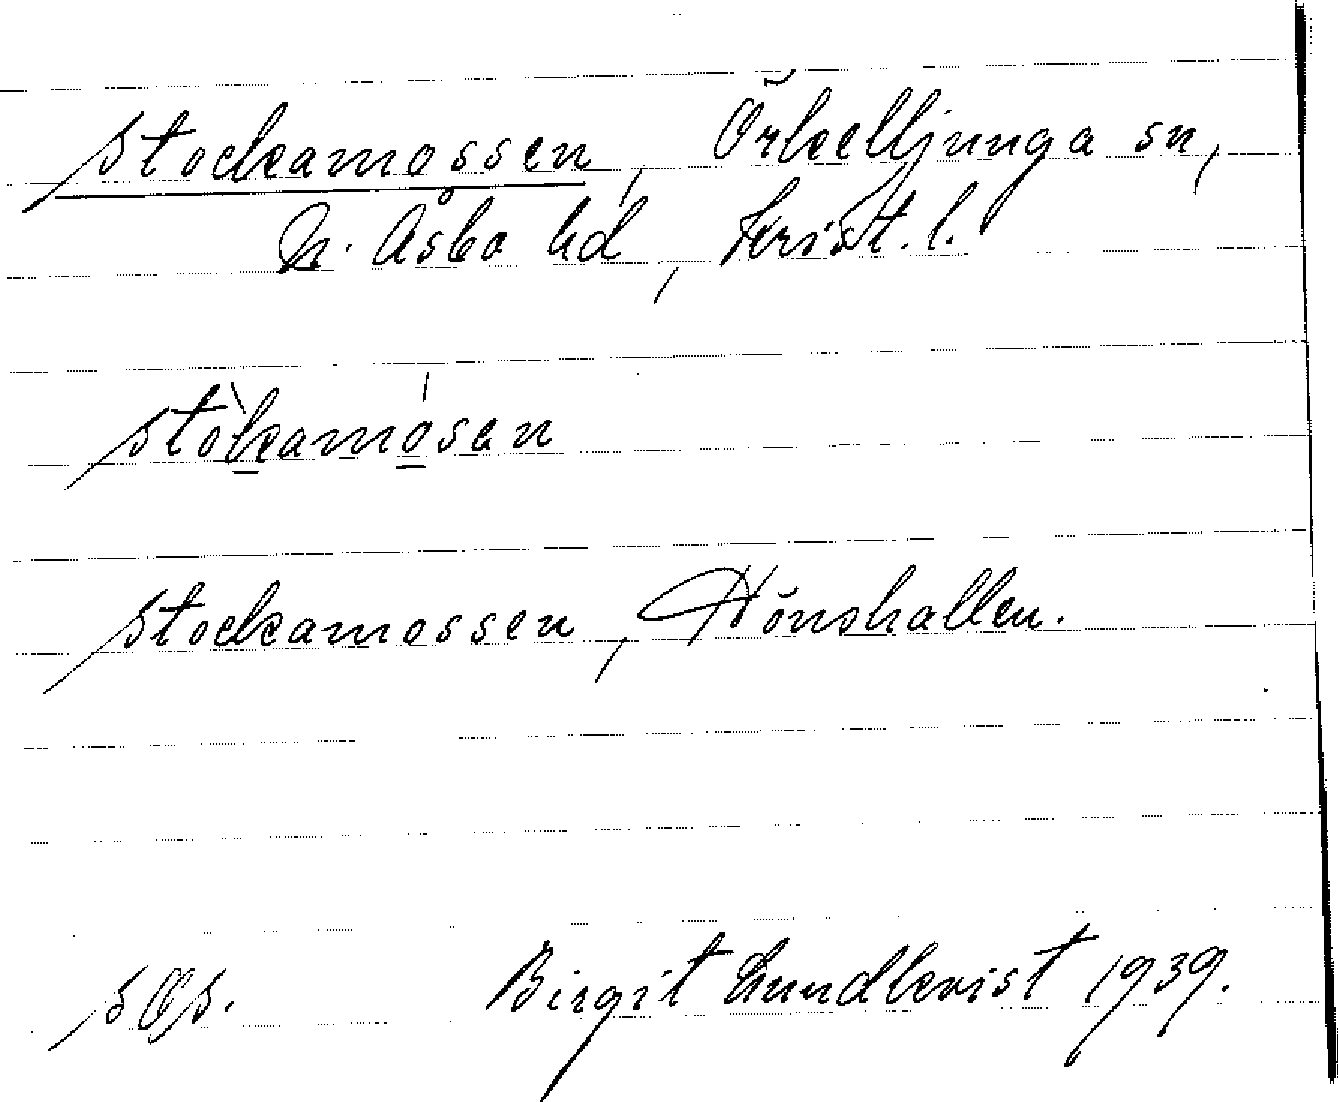 Stockamossen, Örkelljunga sn,
N. Åsbo hd, Krist. l.
stòkamósen
Stockamossen, Hönshallen.
Birgit Lundkvist 1939.